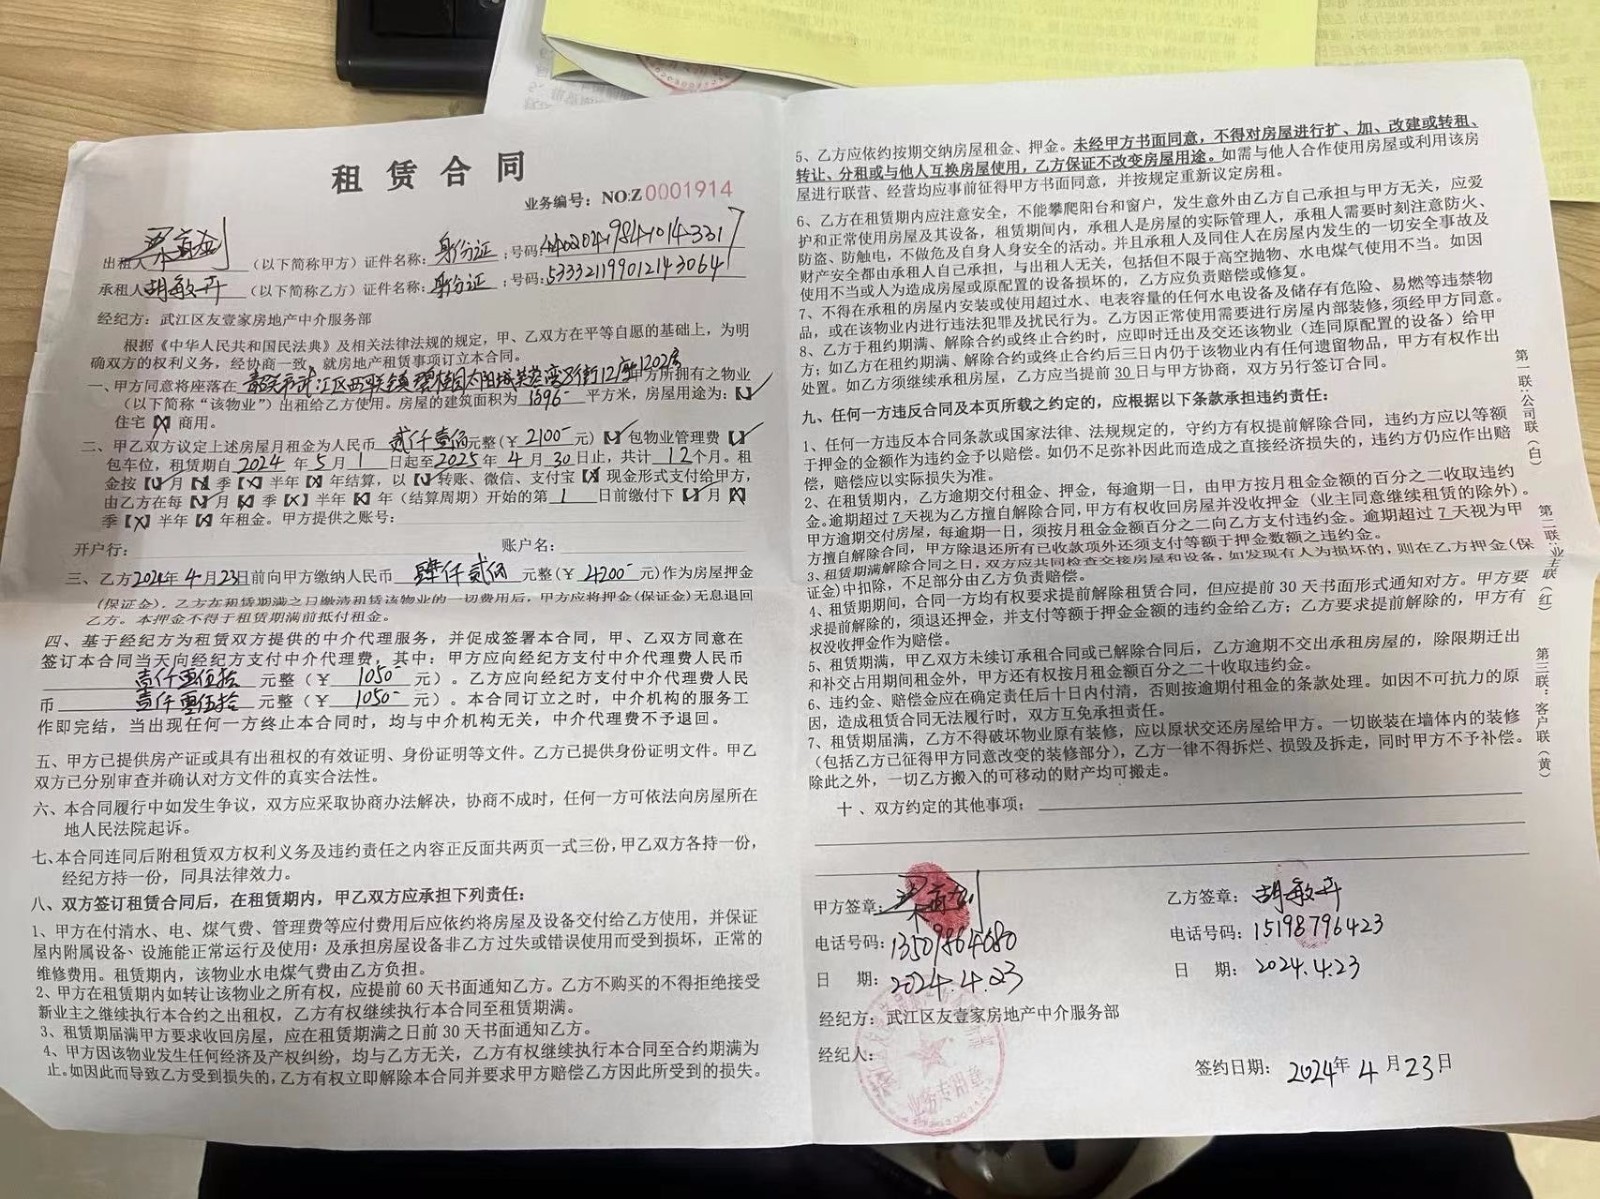 租赁合同
业务编号：NO:Z0001914
出租人（以下简称甲方）证件名称：身份证；号码：440204198410143317
承租人胡敏卉（以下简称乙方）证件名称：身份证；号码：533321199012143064
经纪方：武江区友壹家房地产中介服务部
根据《中华人民共和国民法典》及相关法律法规的规定，甲、乙双方在平等自愿的基础上，为明
确双方的权利义务，经协商一致，就房地产租赁事项订立本合同。
一、甲方同意将座落在韶关市武江区西联镇碧桂园太阳城芙蓉湾3街12座1202房甲方所拥有之物业
（以下简称“该物业”）出租给乙方使用。房屋的建筑面积为 平方米，房屋用途为：【✓】
住宅【X】商用。
二、甲乙双方议定上述房屋月租金为人民币贰仟壹佰元整（￥2100-元）【✓】包物业管理费【✓】
包车位，租赁期自2024年5月1日起至2025年4月30日止，共计12个月。租
金按【✓】月【X】季【X】半年【X】年结算，以【✓】转账、微信、支付宝【X】现金形式支付给甲方，
由乙方在每【✓】月【X】季【X】半年【X】年（结算周期）开始的第1日前缴付下【✓】月【X】
季【X】半年【X】年租金。甲方提供之账号：
开户行： 账户名：
三、乙方2024年4月23日前向甲方缴纳人民币肆仟贰佰元整（￥4200-元）作为房屋押金
（保证金），乙方在租赁期满之日缴清租赁该物业的一切费用后，甲方应将押金(保证金)无息退回
乙方。本押金不得于租赁期满前抵付租金。
四、基于经纪方为租赁双方提供的中介代理服务，并促成签署本合同，甲、乙双方同意在
签订本合同当天向经纪方支付中介代理费，其中：甲方应向经纪方支付中介代理费人民币
壹仟零伍拾元整（￥1050-元）。乙方应向经纪方支付中介代理费人民
币壹仟零伍拾元整（￥1050-元）。本合同订立之时，中介机构的服务工
作即完结，当出现任何一方终止本合同时，均与中介机构无关，中介代理费不予退回。
五、甲方已提供房产证或具有出租权的有效证明、身份证明等文件。乙方已提供身份证明文件。甲乙
双方已分别审查并确认对方文件的真实合法性。
六、本合同履行中如发生争议，双方应采取协商办法解决，协商不成时，任何一方可依法向房屋所在
地人民法院起诉。
七、本合同连同后附租赁双方权利义务及违约责任之内容正反面共两页一式三份，甲乙双方各持一份，
经纪方持一份，同具法律效力。
八、双方签订租赁合同后，在租赁期内，甲乙双方应承担下列责任：
1、甲方在付清水、电、煤气费、管理费等应付费用后应依约将房屋及设备交付给乙方使用，并保证
屋内附属设备、设施能正常运行及使用；及承担房屋设备非乙方过失或错误使用而受到损坏，正常的
维修费用。租赁期内，该物业水电煤气费由乙方负担。
2、甲方在租赁期内如转让该物业之所有权，应提前60天书面通知乙方。乙方不购买的不得拒绝接受
新业主之继续执行本合约之出租权，乙方有权继续执行本合同至租赁期满。
3、租赁期届满甲方要求收回房屋，应在租赁期满之日前30天书面通知乙方。
4、甲方因该物业发生任何经济及产权纠纷，均与乙方无关，乙方有权继续执行本合同至合约期满为
止。如因此而导致乙方受到损失的，乙方有权立即解除本合同并要求甲方赔偿乙方因此所受到的损失。
5、乙方应依约按期交纳房屋租金、押金。未经甲方书面同意，不得对房屋进行扩、加、改建或转租、
转让、分租或与他人互换房屋使用，乙方保证不改变房屋用途。如需与他人合作使用房屋或利用该房
屋进行联营、经营均应事前征得甲方书面同意，并按规定重新议定房租。
6、乙方在租赁期内应注意安全，不能攀爬阳台和窗户，发生意外由乙方自己承担与甲方无关，应爱
护和正常使用房屋及其设备，租赁期间内，承租人是房屋的实际管理人，承租人需要时刻注意防火、
防盗、防触电，不做危及自身人身安全的活动。并且承租人及同住人在房屋内发生的一切安全事故及
财产安全都由承租人自己承担，与出租人无关，包括但不限于高空抛物、水电煤气使用不当。如因
使用不当或人为造成房屋或原配置的设备损坏的，乙方应负责赔偿或修复。
7、不得在承租的房屋内安装或使用超过水、电表容量的任何水电设备及储存有危险、易燃等违禁物
品，或在该物业内进行违法犯罪及扰民行为。乙方因正常使用需要进行房屋内部装修，须经甲方同意。
8、乙方于租约期满、解除合约或终止合约时，应即时迁出及交还该物业（连同原配置的设备）给甲
方；如乙方在租约期满、解除合约或终止合约后三日内仍于该物业内有任何遗留物品，甲方有权作出
处置。如乙方须继续承租房屋，乙方应当提前30日与甲方协商，双方另行签订合同。
九、任何一方违反合同及本页所载之约定的，应根据以下条款承担违约责任：
1、任何一方违反本合同条款或国家法律、法规规定的，守约方有权提前解除合同，违约方应以等额
于押金的金额作为违约金予以赔偿。如仍不足弥补因此而造成之直接经济损失的，违约方仍应作出赔
偿，赔偿应以实际损失为准。
2、在租赁期内，乙方逾期交付租金、押金，每逾期一日，由甲方按月租金金额的百分之二收取违约
金。逾期超过7天视为乙方擅自解除合同，甲方有权收回房屋并没收押金（业主同意继续租赁的除外）。
甲方逾期交付房屋，每逾期一日，须按月租金金额百分之二向乙方支付违约金。逾期超过7天视为甲
方擅自解除合同，甲方除退还所有已收款项外还须支付等额于押金数额之违约金。
3、租赁期满解除合同之日，双方应共同检查交接房屋和设备，如发现有人为损坏的，则在乙方押金(保
证金)中扣除，不足部分由乙方负责赔偿。
4、租赁期期间，合同一方均有权要求提前解除租赁合同，但应提前30天书面形式通知对方。甲方要
求提前解除的，须退还押金，并支付等额于押金金额的违约金给乙方；乙方要求提前解除的，甲方有
权没收押金作为赔偿。
5、租赁期满，甲乙双方未续订承租合同或已解除合同后，乙方逾期不交出承租房屋的，除限期迁出
和补交占用期间租金外，甲方还有权按月租金额百分之二十收取违约金。
6、违约金、赔偿金应在确定责任后十日内付清，否则按逾期付租金的条款处理。如因不可抗力的原
因，造成租赁合同无法履行时，双方互免承担责任。
7、租赁期届满，乙方不得破坏物业原有装修，应以原状交还房屋给甲方。一切嵌装在墙体内的装修
（包括乙方已征得甲方同意改变的装修部分），乙方一律不得拆烂、损毁及拆走，同时甲方不予补偿。
除此之外，一切乙方搬入的可移动的财产均可搬走。
十、双方约定的其他事项：
甲方签章： 乙方签章：胡敏卉
电话号码：13509864680 电话号码：15198796423
日 期：2024.4.23 日 期：2024.4.23
经纪方：武江区友壹家房地产中介服务部
经纪人：
业务专用章
签约日期：2024年4月23日
第一联：公司联（白）
第二联：业主联（红）
第三联：客户联（黄）